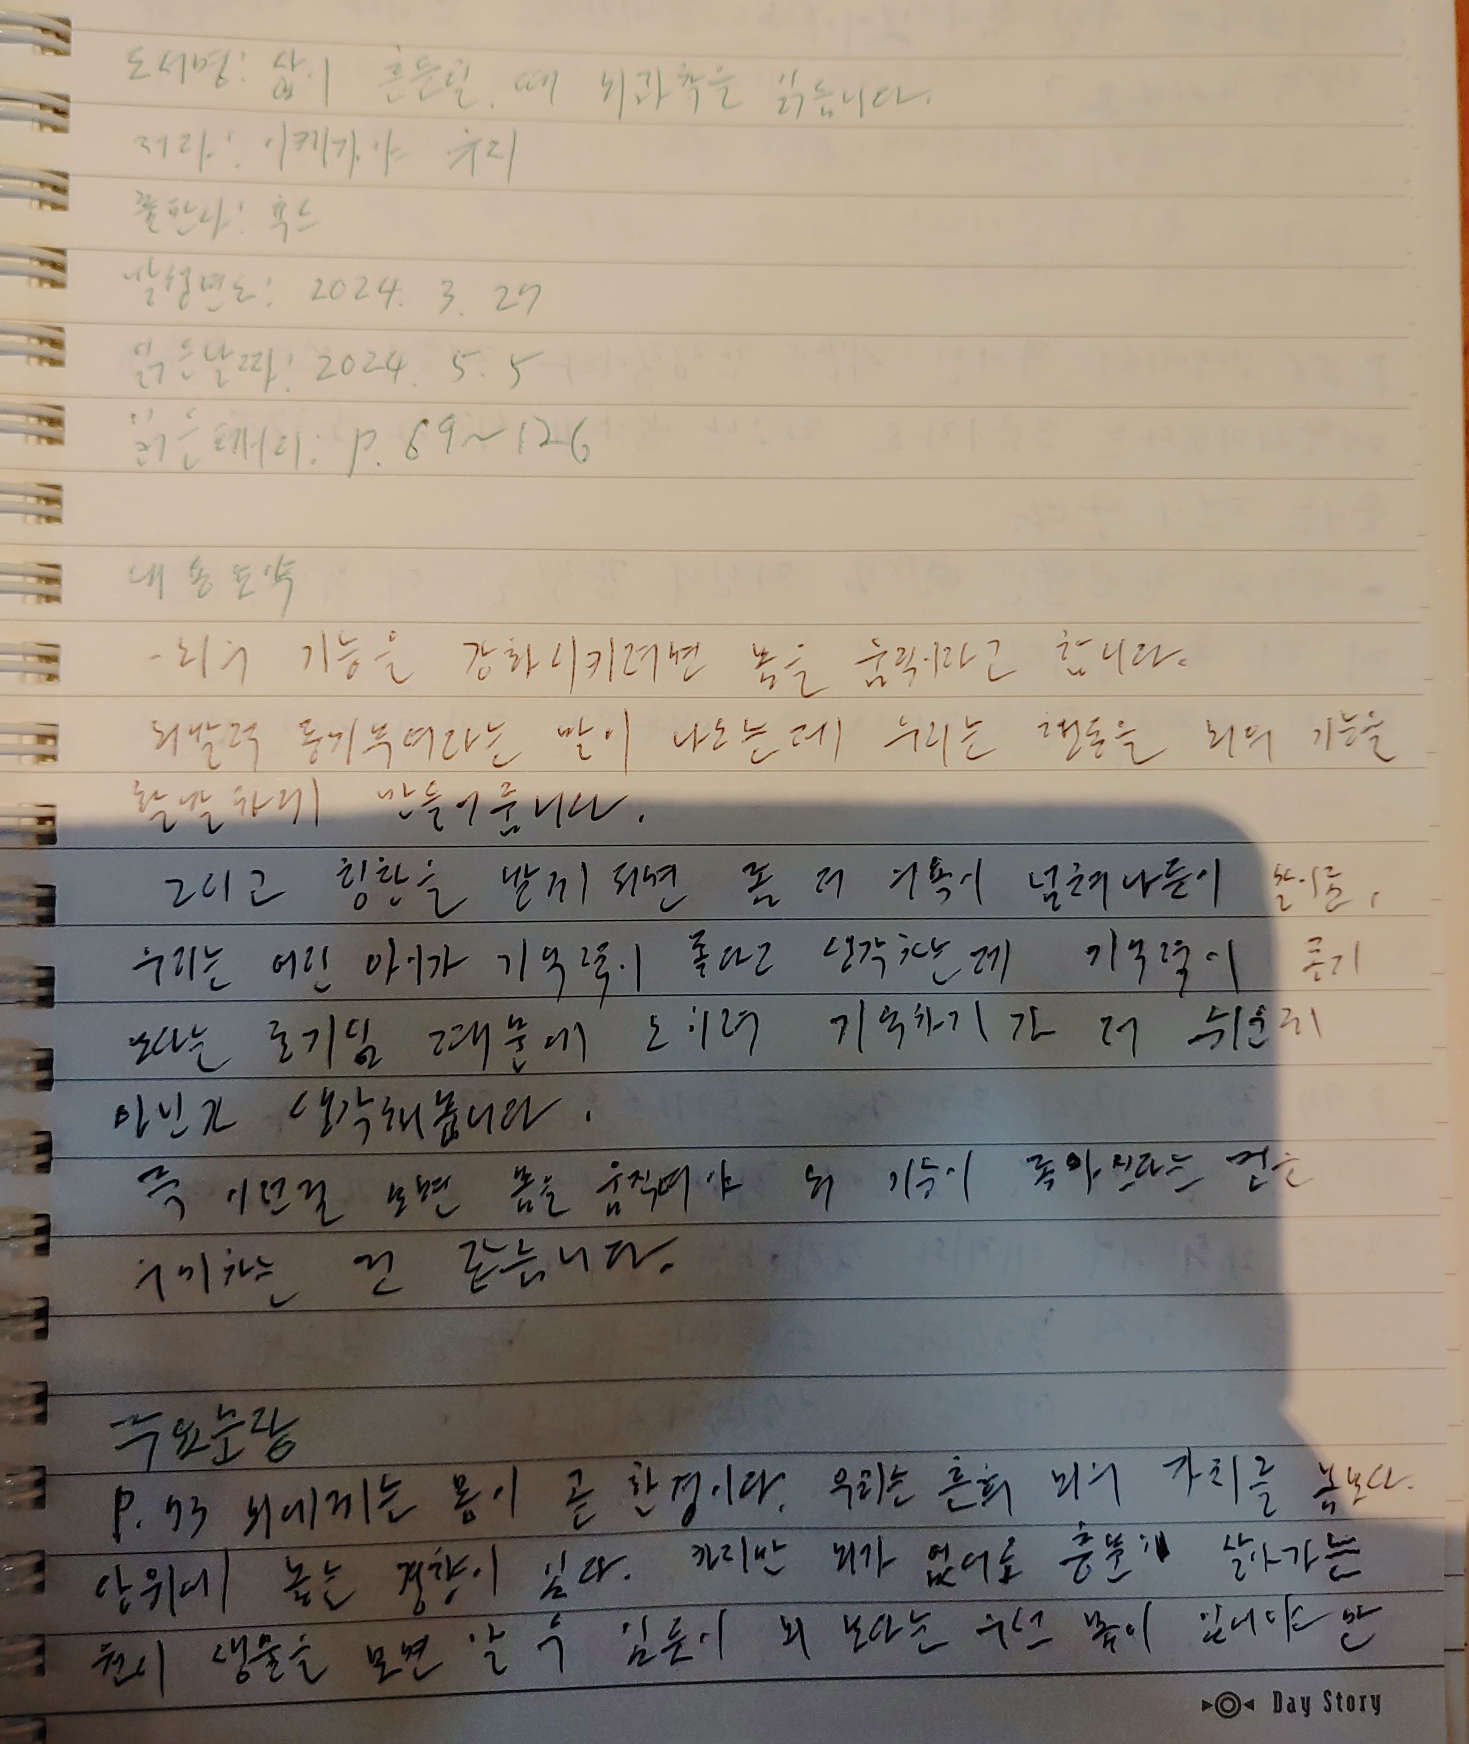 도서명: 삶이 흔들릴 때 뇌과학을 읽습니다.
저자: 이케가야 유지
출판사: 힉스
발행년도: 2024. 3. 27
읽은날짜: 2024. 5. 5
읽은페이지: P. 69~126
내용요약
-뇌의 기능을 강화시키려면 몸을 움직이라고 합니다.
뇌발적 동기부여라는 말이 나오는데 우리는 행동을 뇌의 기능을
활발하게 만들어줍니다.
그리고 칭찬을 받게되면 좀 더 의욕이 넘쳐나듯이
우리는 어린 아이가 기억력이 좋다고 생각하는데 기억력이 좋기
보다는 호기심 때문에 오히려 기억하기가 더 쉬운게
아닌가 생각해봅니다.
즉 이런걸 보면 몸을 움직여야 뇌 기능이 좋아진다는 건은
의미하는 건 같습니다.
주요문장
P. 73 뇌에게는 몸이 곧 환경이다. 우리는 흔히 뇌의 가치를 몸보다
상위에 놓는 경향이 있다. 하지만 뇌가 없어도 충분히 살아가는
원시 생물을 보면 알 수 있듯이 뇌 보다는 우선 몸이 있어야 만
Day Story